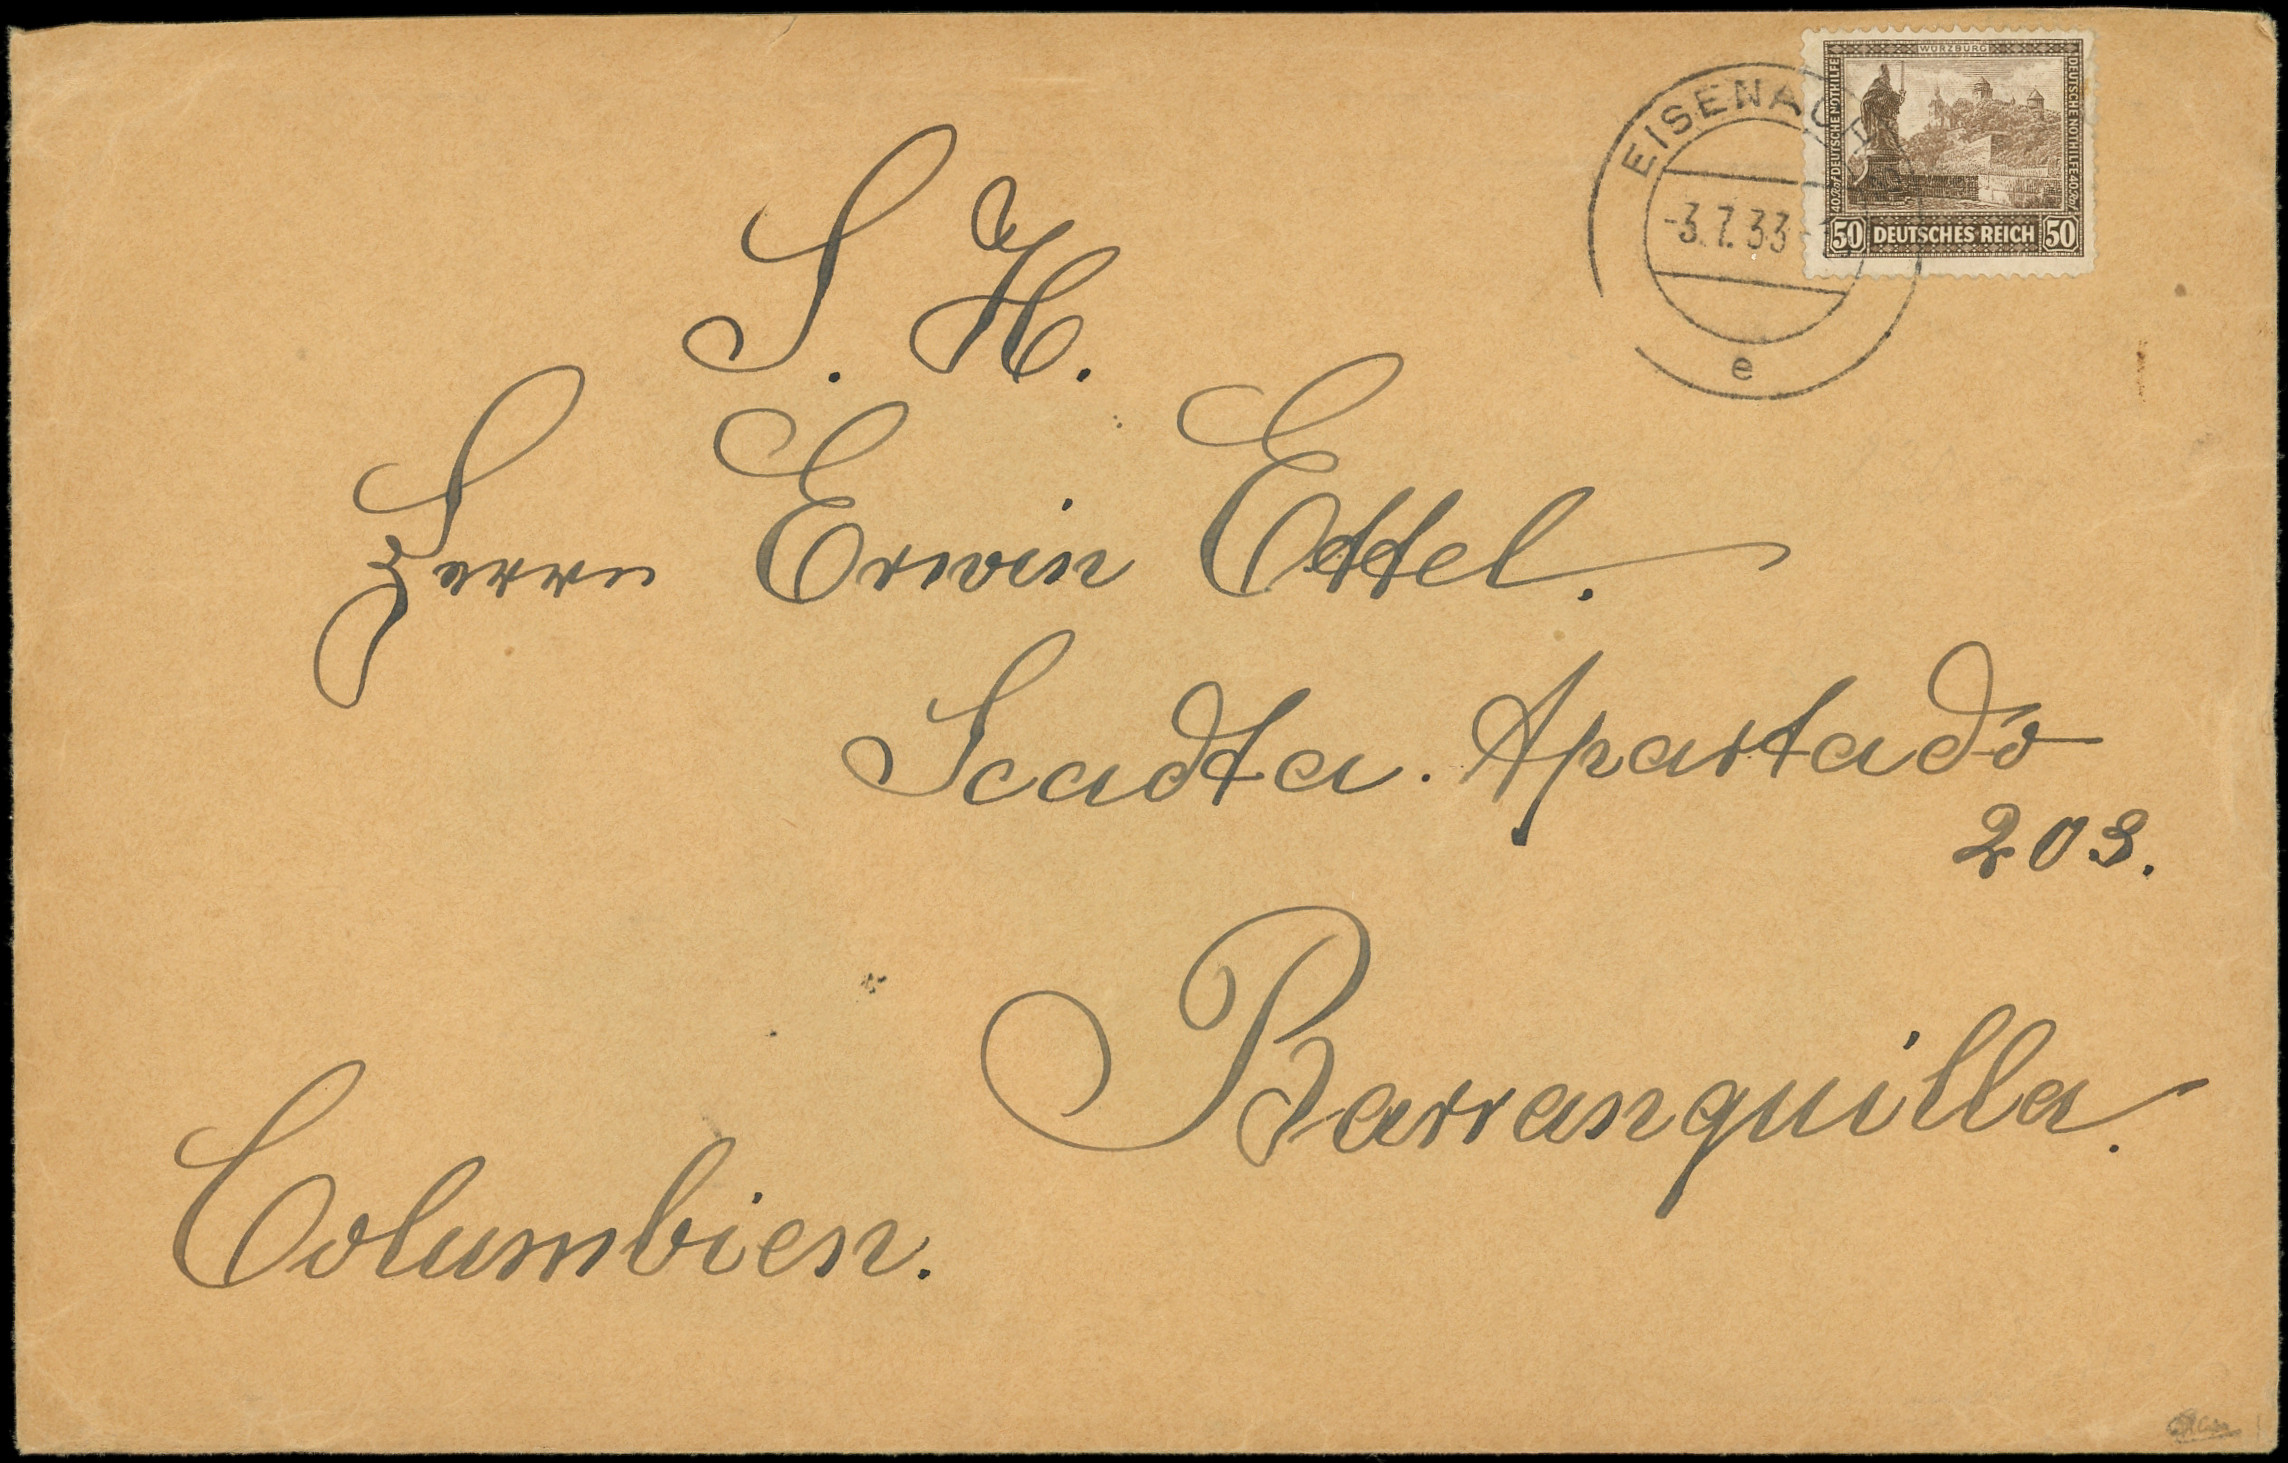 WÜRZBURG
40 Rpf DEUTSCHE NOTHILFE
DEUTSCHE NOTHILFE 40 Rpf
50 DEUTSCHES REICH 50
EISENACH
-3.7.33
e
S. H.
Herrn Erwin Ettel.
Scadta. Apartado
203.
Barranquilla.
Columbien.